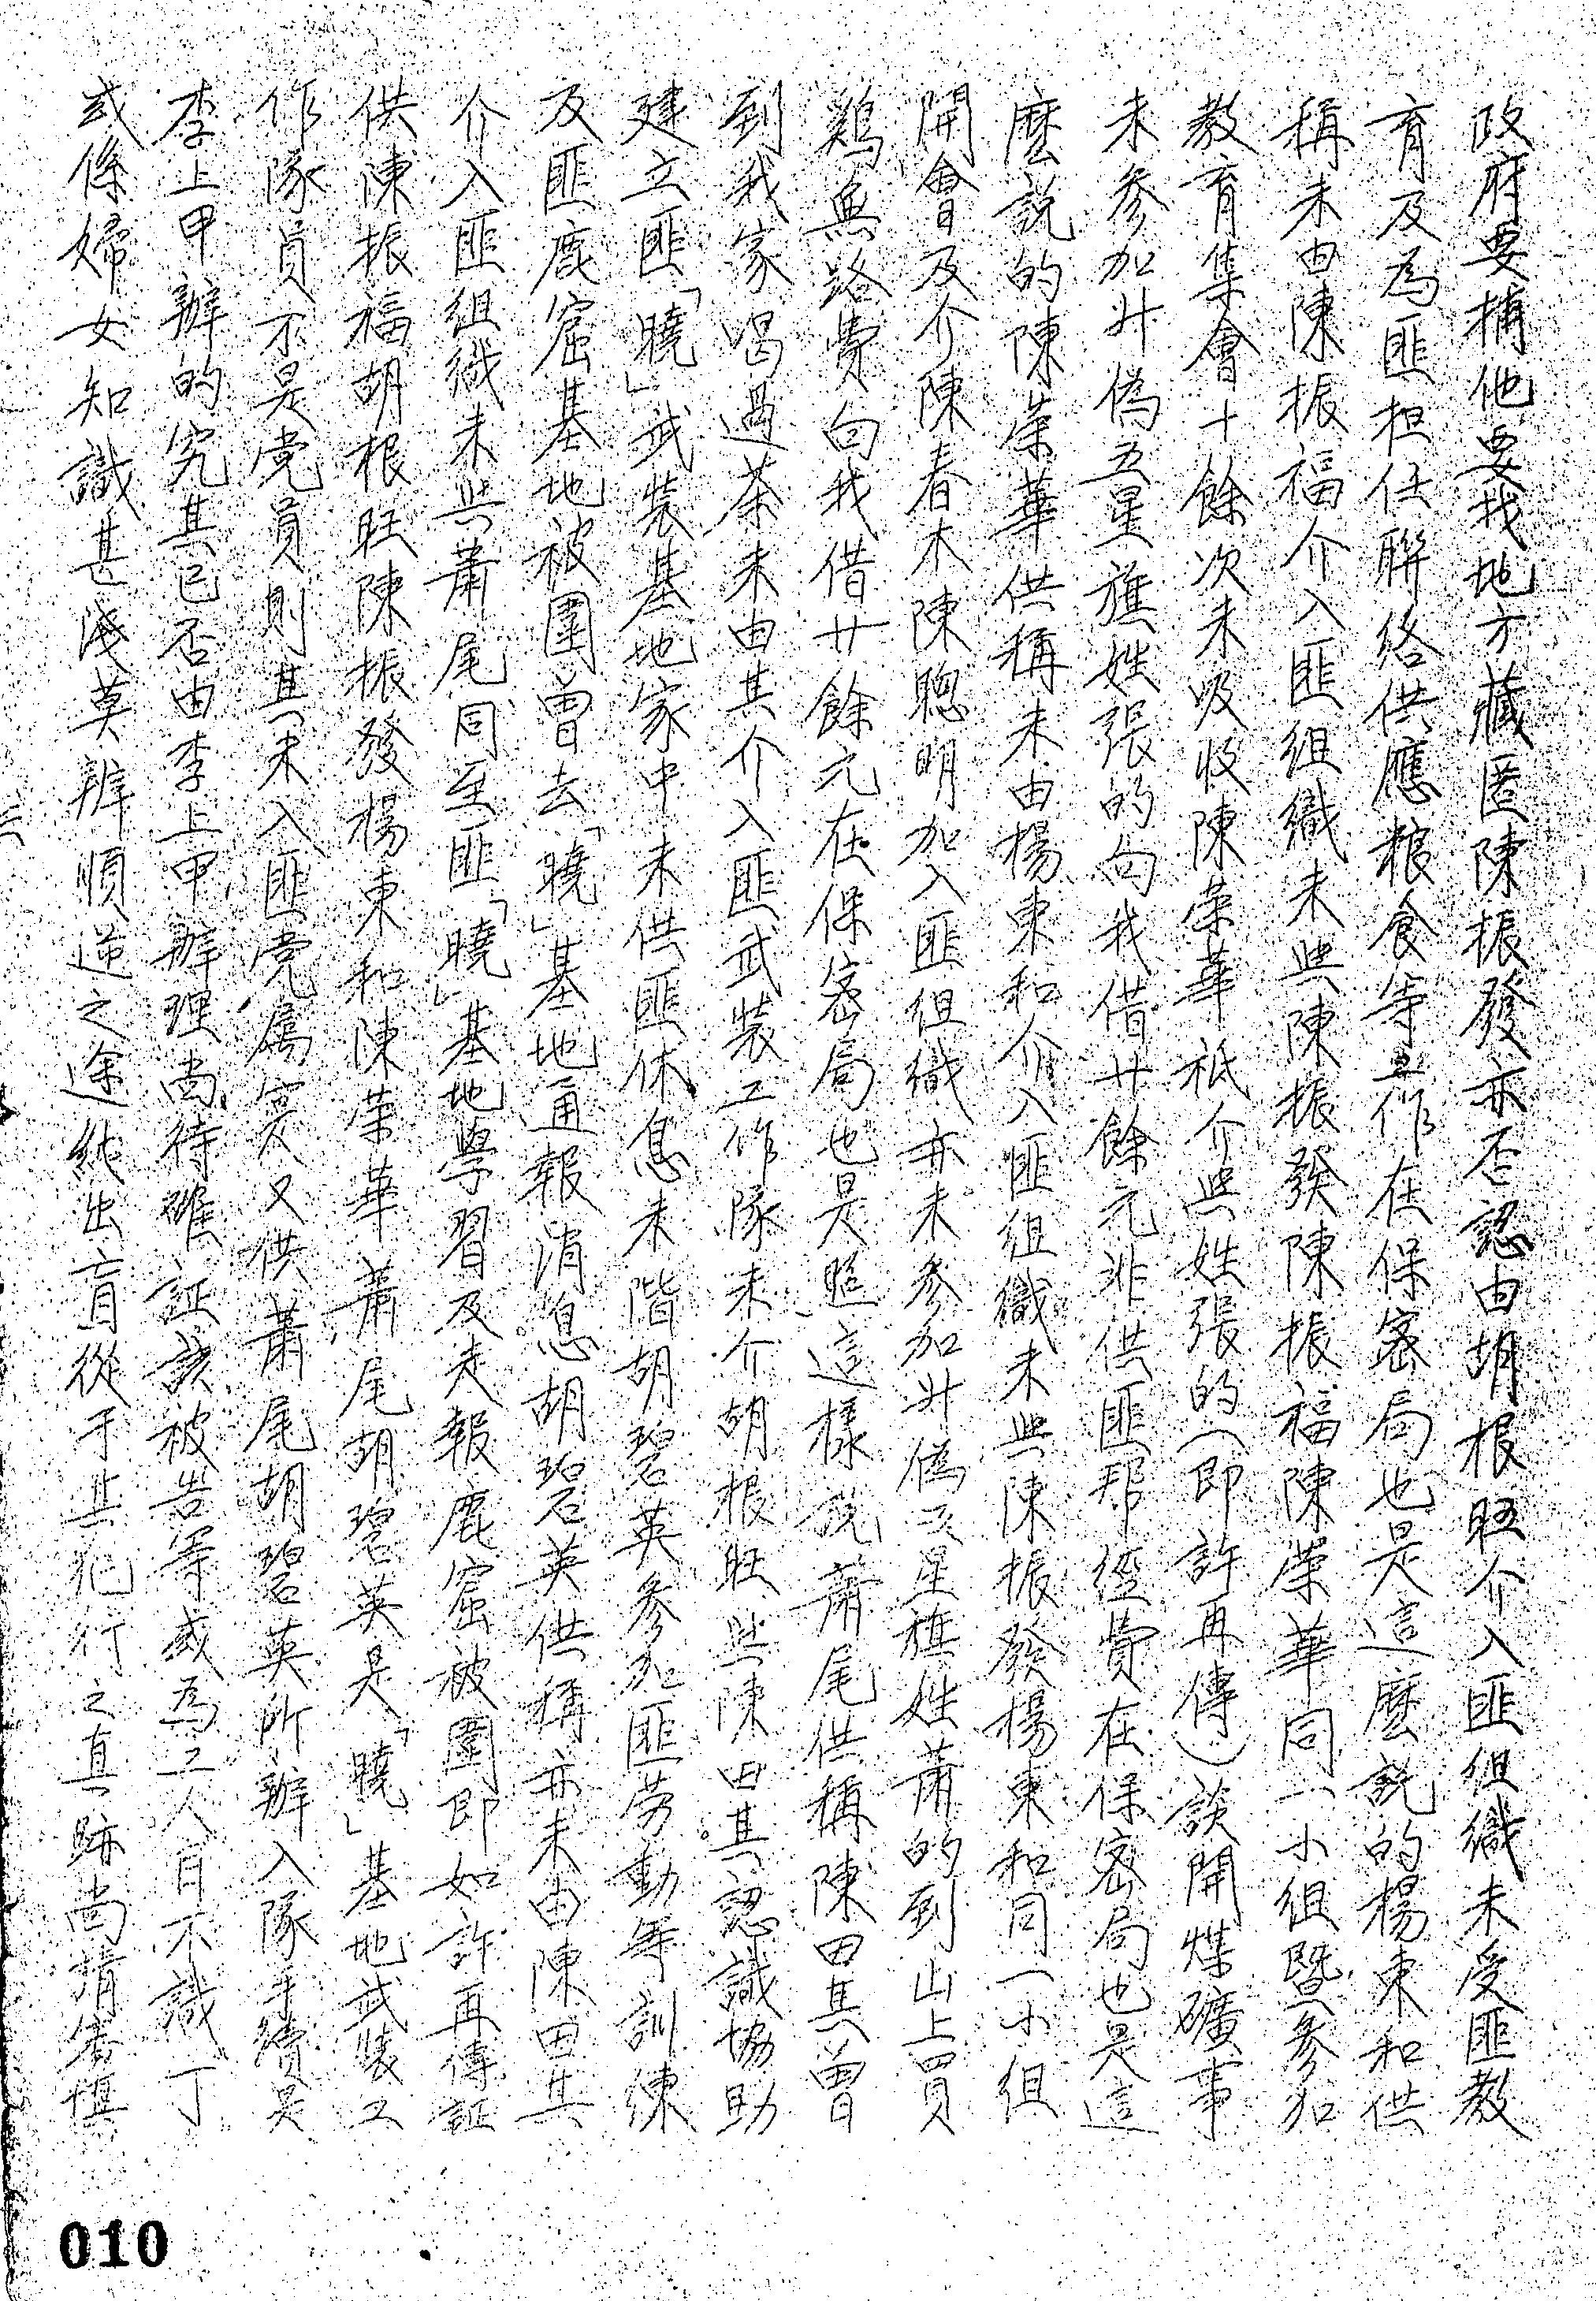 政府要捕他要找地方藏匿陳振發亦否認由胡根旺介入匪組織未受匪教
育及為匪担任聯絡供應粮食等工作在保密局也是這麼説的楊東和供
稱未由陳振福介入匪組織未與陳振發陳振福陳榮華同一小組暨參加
教育集會十餘次未吸收陳榮華祇介與姓張的(即許再傳)談開煤礦事
未參加升偽五星旗姓張的向我借廿餘元非供匪帮經費在保密局也是這
麼説的陳榮華供稱未由楊東和介入匪組織未與陳振發楊東和同一小組
開會及介陳春木陳聰明加入匪組織亦未參加升偽五星旗姓蕭的到山上買
鷄無路費向我借廿餘元在保密局也是照這樣説蕭尾供稱陳田其曾
到我家喝過茶未由其介入匪武裝工作隊未介胡根旺與陳田其認識協助
建立匪「曉」武裝基地家中未供匪休息未偕胡碧英參加匪勞動等訓練
及匪鹿窟基地被圍曾去「曉」基地通報消息胡碧英供稱亦未由陳田其
介入匪組織未與蕭尾同至匪「曉」基地學習及走報鹿窟被圍即如許再傳証
供陳振福胡根旺陳振發楊東和陳榮華蕭尾胡碧英是「曉」基地武裝工
作隊員不是党員則其未入匪党屬实又供蕭尾胡碧英所辦入隊手續是
李上甲辦的究其已否由李上甲辦理尚待確証該被告等或為工人目不識丁
或係婦女知識甚淺莫辨順逆之途純出盲從于其犯行之真跡尚請審慎
三
010